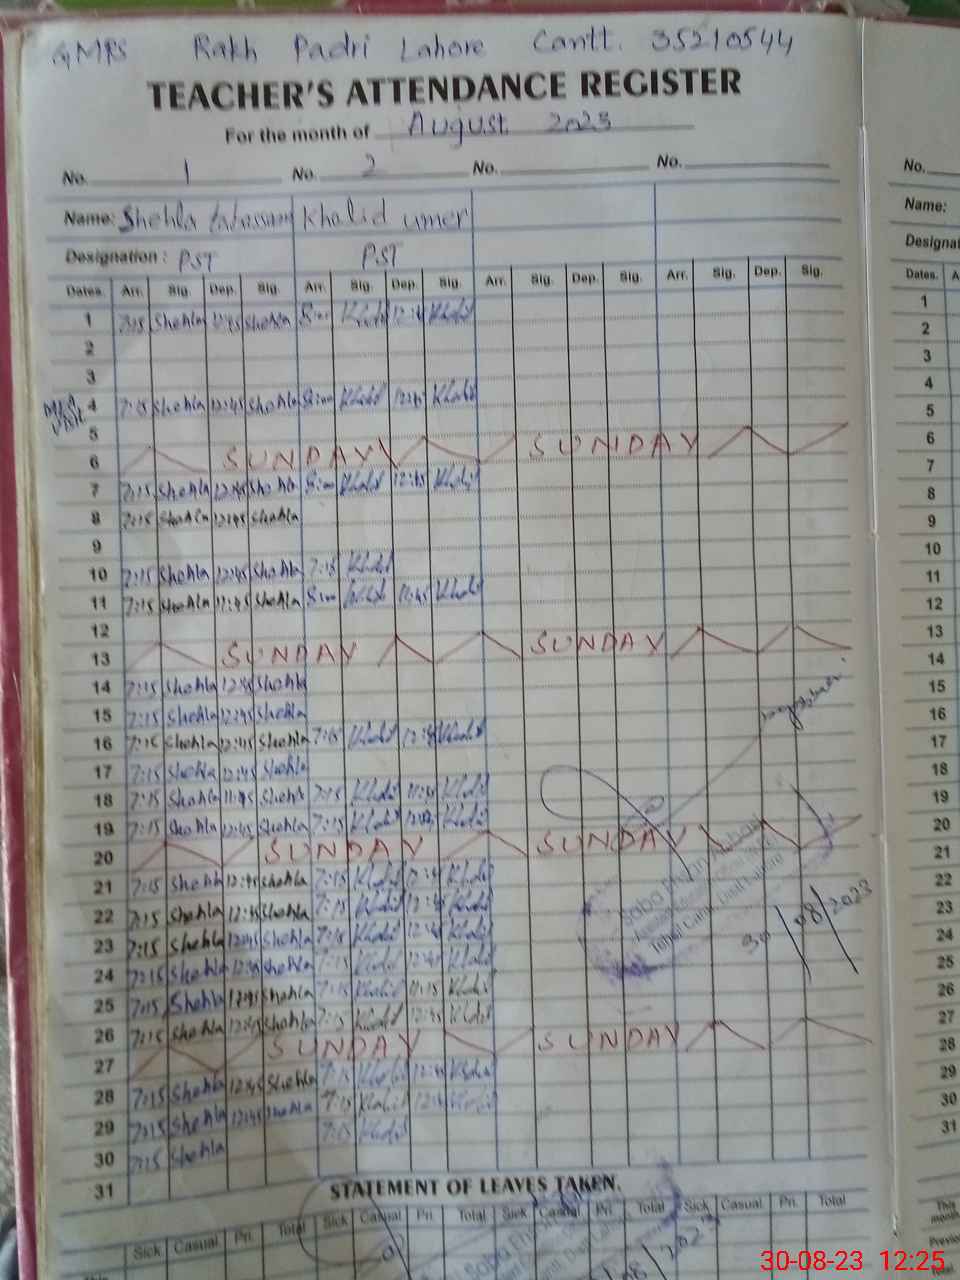 GMPS Rakh Padri Lahore Cantt. 35210544
TEACHER'S ATTENDANCE REGISTER
For the month of August 2023
No. 1 No. 2 No. No. No.
Name: Shehla Khalid umer Name:
Designation : PST PST
Dates. Arr. Sig. Dep. Sig. Arr. Sig. Dep. Sig. Arr. Sig. Dep. Sig. Arr. Sig. Dep. Sig. Dates.
1 7:15 Shehla 12:45 Shehla Khalid 12:45 Khalid 1
2 2
3 3
Visit 4 7:15 Shehla 12:45 Shehla 8:00 Khalid 12:45 Khalid 4
5 5
6 SUNDAY SUNDAY 6
7 7:15 Shehla 12:45 Shehla 8:00 Khalid 12:45 Khalid 7
8 7:15 Shehla 12:45 Shehla 8
9 9
10 7:15 Shehla 12:45 Shehla 7:15 Khalid 10
11 7:15 Shehla 12:45 Shehla 8:00 Khalid 11:45 Khalid 11
12 12
13 SUNDAY SUNDAY 13
14 7:15 Shehla 12:45 Shehla 14
15 7:15 Shehla 12:45 Shehla 15
16 7:15 Shehla 12:45 Shehla 7:15 Khalid 12:45 Khalid 16
17 7:15 Shehla 12:45 Shehla 17
18 7:15 Shehla 11:45 Shehla 7:15 Khalid 11:45 Khalid 18
19 7:15 Shehla 12:45 Shehla 7:15 Khalid 12:45 Khalid 19
20 SUNDAY SUNDAY 20
21 7:15 Shehla 12:45 Shehla 7:15 Khalid 12:45 Khalid 21
22 7:15 Shehla 12:45 Shehla 7:15 Khalid 12:45 Khalid 22
23 7:15 Shehla 12:45 Shehla 7:15 Khalid 12:45 Khalid 23
24 7:15 Shehla 12:45 Shehla 7:15 Khalid 12:45 Khalid 24
25 7:15 Shehla Shehla 7:15 Khalid 11:15 Khalid 25
26 7:15 Shehla 12:45 Shehla 7:15 Khalid 12:45 Khalid 26
27 SUNDAY SUNDAY 27
28 7:15 Shehla 12:45 Shehla 7:15 Khalid 12:45 Khalid 28
29 7:15 Shehla 12:45 Shehla 7:15 Khalid Khalid 29
30 7:15 Shehla 7:15 Khalid 30
31 31
Saba
Tehsil Cantt. Distt Lahore
30/08/2023
STATEMENT OF LEAVES TAKEN.
Sick Casual Pri. Total Sick Casual Pri. Total Sick Casual Pri. Total Sick Casual Pri. Total
This month
30-08-23 12:25